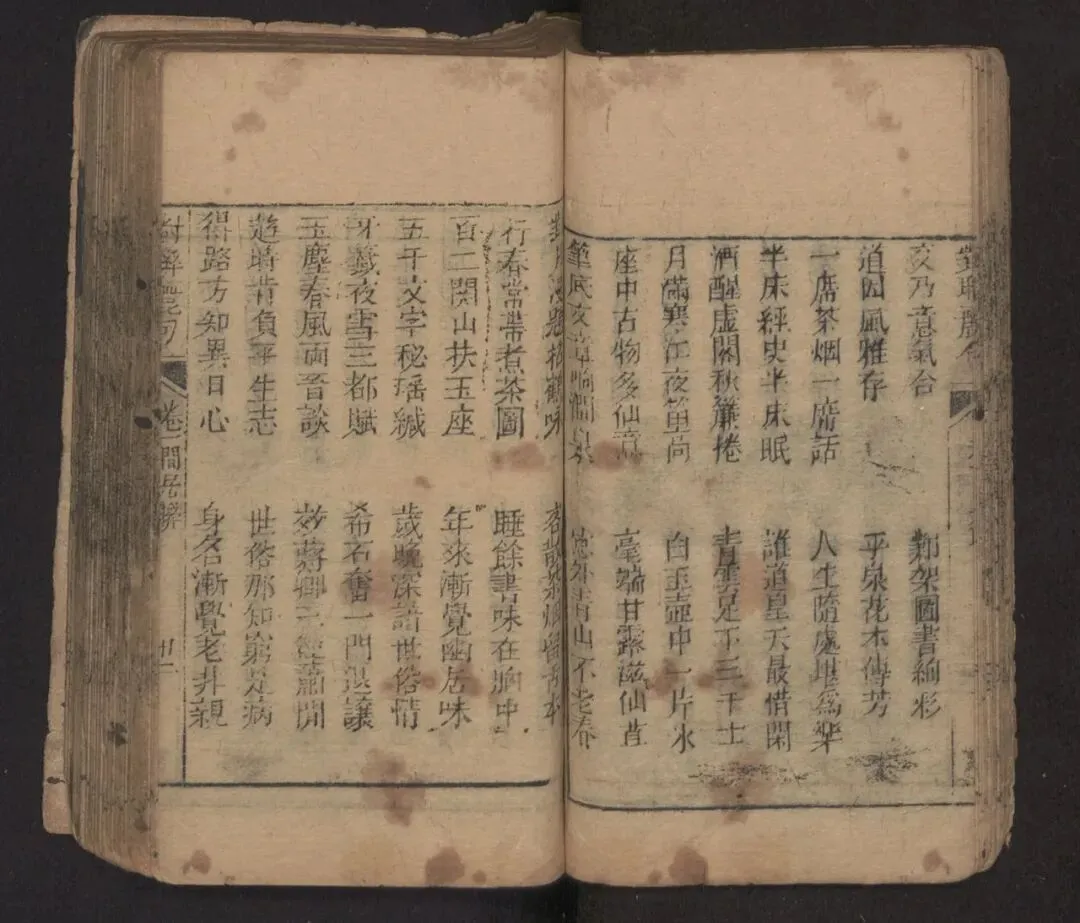 交乃意氣合
鄴架圖書絢彩
道因風雅存
平泉花木傳芳
一席茶烟一席話
人生隨處堪爲樂
半床經史半床眠
誰道皇天最惜閑
酒醒虛閣秋簾捲
青雲足下三千士
月滿寒江夜笛
白玉壺中一片氷
座中古物多仙意
毫端甘露滋仙
筆底文章
窓外青山不老春
行春常帶煮茶圖
睡餘書味在胸中
百二関山扶玉座
年來漸覺幽居味
五千文字秘瑶緘
歲晚深諳世俗情
牙籤夜雪三都賦
希石奮一門退讓
玉塵春風兩晉談
效蔣卿三徑蕭閒
遊時肯負平生志
世俗那知窮是病
得路方知異日心
身名漸覺老丼親
卷一
廿一